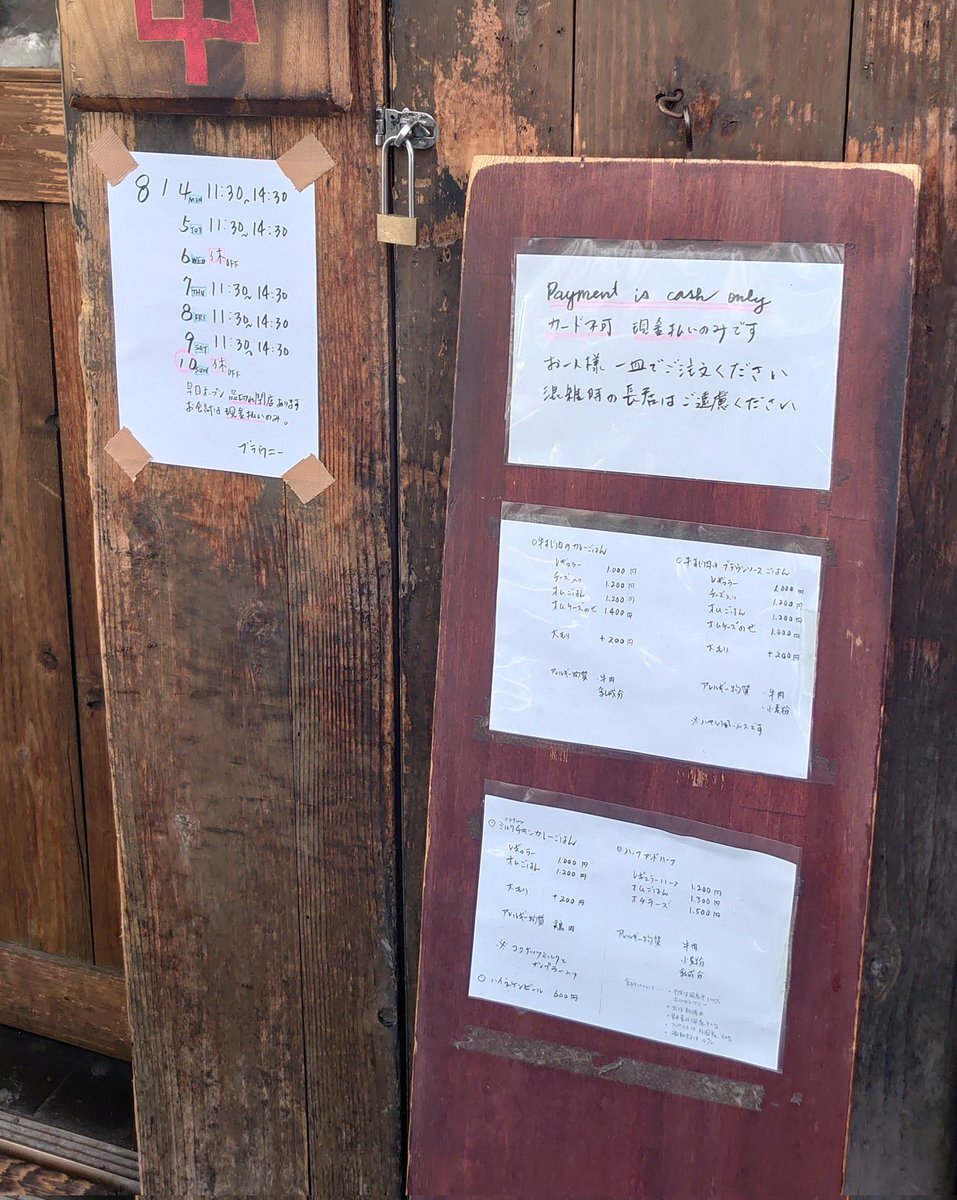 中
8/4 MON 11:30~14:30
5 TUE 11:30~14:30
6 WED 休 OFF
7 THU 11:30~14:30
8 FRI 11:30~14:30
9 SAT 11:30~14:30
10 SUN 休 OFF
早目オープン 品切れ閉店あります
お会計は現金払いのみ。
ブラウニー
Payment is cash only
カード不可 現金払いのみです
お一人様 一皿でご注文ください
混雑時の長居はご遠慮ください
○牛すじ肉のカレーごはん
レギュラー 1.000円
チーズ入り 1.200円
オムごはん 1.200円
オムチーズのせ 1.400円
大もり +200円
アレルギー物質 ・牛肉
乳成分
○牛すじ肉のブラウンソースごはん
レギュラー 1.000円
チーズ入り 1.200円
オムごはん 1.200円
オムチーズのせ 1.400円
大もり +200円
アレルギー物質 ・牛肉
・小麦粉
※ハヤシ風ソースです
ココナッツ
○ミルクチキンカレーごはん
レギュラー 1.000円
オムごはん 1.200円
大もり +200円
アレルギー物質 鶏肉
※ココナッツミルクと
○ハイネケンビール 600円
○ハーフアンドハーフ
レギュラーハーフ 1.200円
オムごはん 1.300円
オムチーズ 1.500円
アレルギー物質 牛肉
小麦粉
乳成分